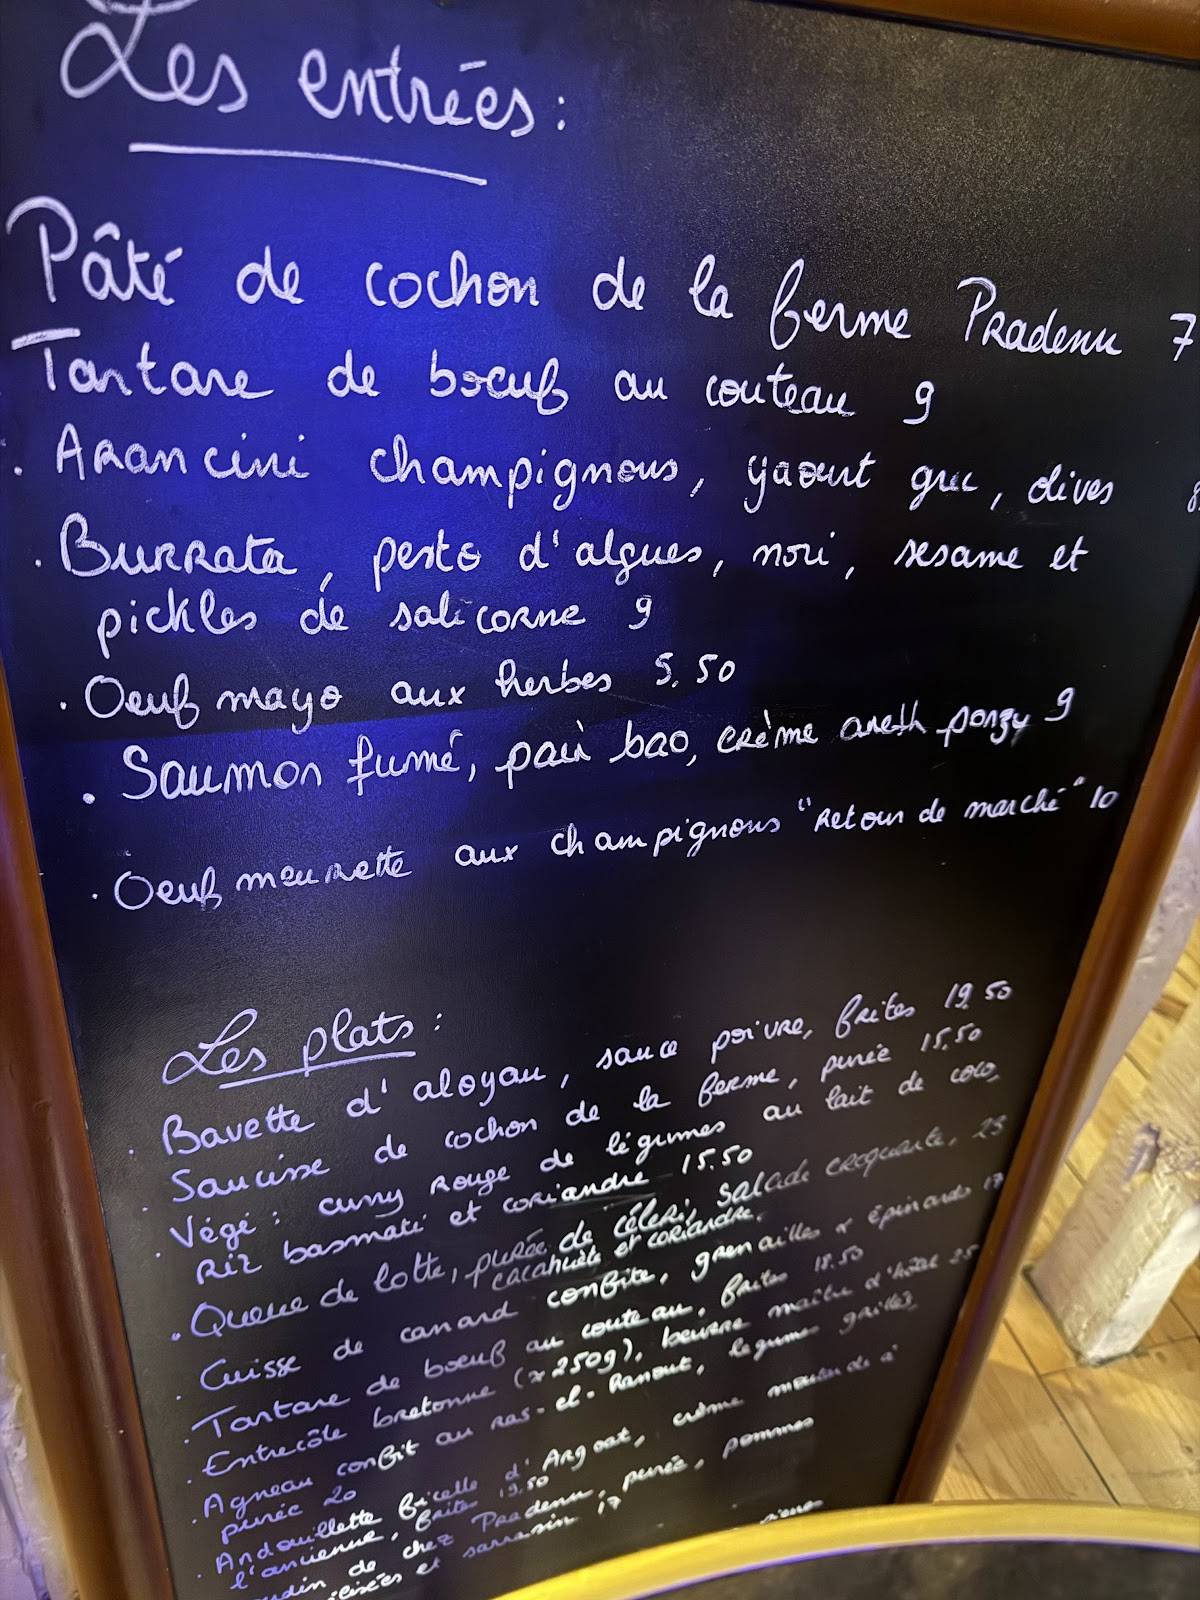 Les entrées :
Pâté de cochon de la ferme Pradenn 7
Tartare de boeuf au couteau 9
. Arancini champignons, yaourt grec, olives 8
. Burrata, pesto d'algues, nori, sesame et
pickles de salicorne 9
. Oeuf mayo aux herbes 5.50
. Saumon fumé, pain bao, crème aneth ponzu 9
. Oeuf meurette aux champignons "retour de marché" 10
Les plats :
. Bavette d'aloyau, sauce poivre, frites 19.50
. Saucisse de cochon de la ferme, purée 15.50
. Végé : curry rouge de légumes au lait de coco,
riz basmati et coriandre 15.50
. Queue de lotte, purée de céleri, salade croquante, 23
cacahuète et coriandre.
. Cuisse de canard confite, grenailles & épinards 17
. Tartare de boeuf au couteau, frites 18.50
. Entrecôte bretonne (≈ 250g), beurre maître d'hôtel 25
. Agneau confit au ras-el-Hanout, légumes grillés,
purée 20
. Andouillette ficelle d'Argoat, crème moutarde à
l'ancienne, frites 19.50
oudin de chez Pradenn, purée, pommes
lisées et sarrasin 17